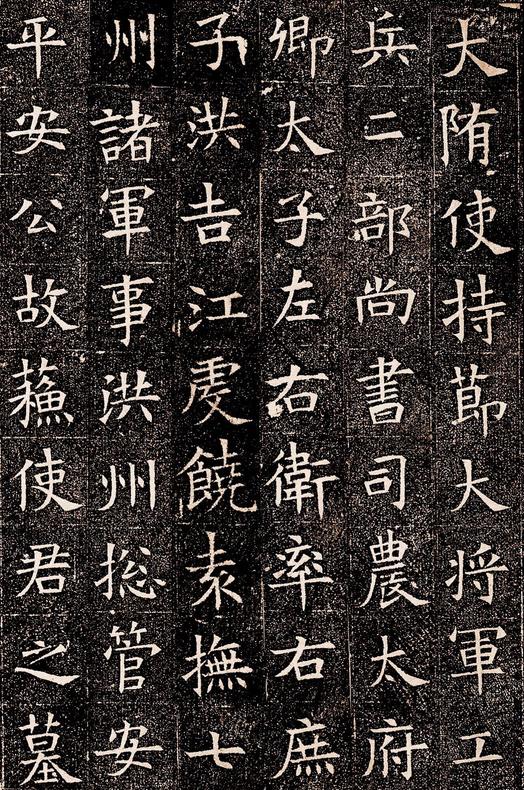 大隋使持莭大将軍工
兵二部尚書司農太府
卿太子左右衛率右庶
子洪吉江虔饒袁撫七
州諸軍事洪州捴管安
平安公故蘓使君之墓